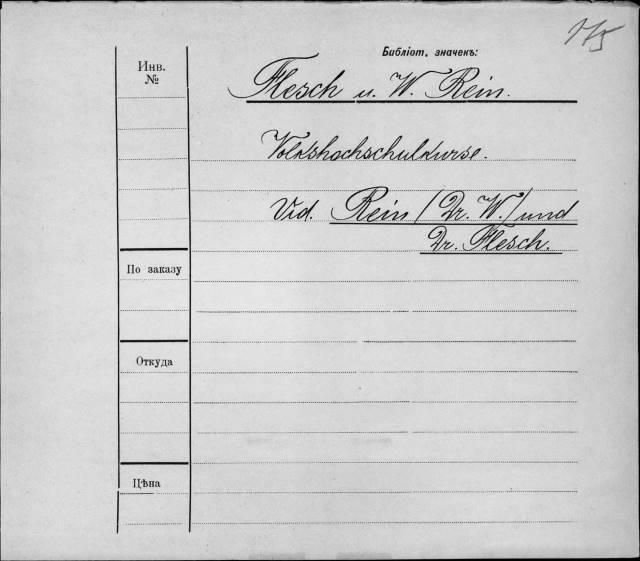 175
Библіот. значекъ:
Инв.
№
Flesch u. W. Rein.
Volkshochschulkurse.
Vid. Rein (Dr. W.) und
Dr. Flesch.
По заказу
Откуда
Цѣна